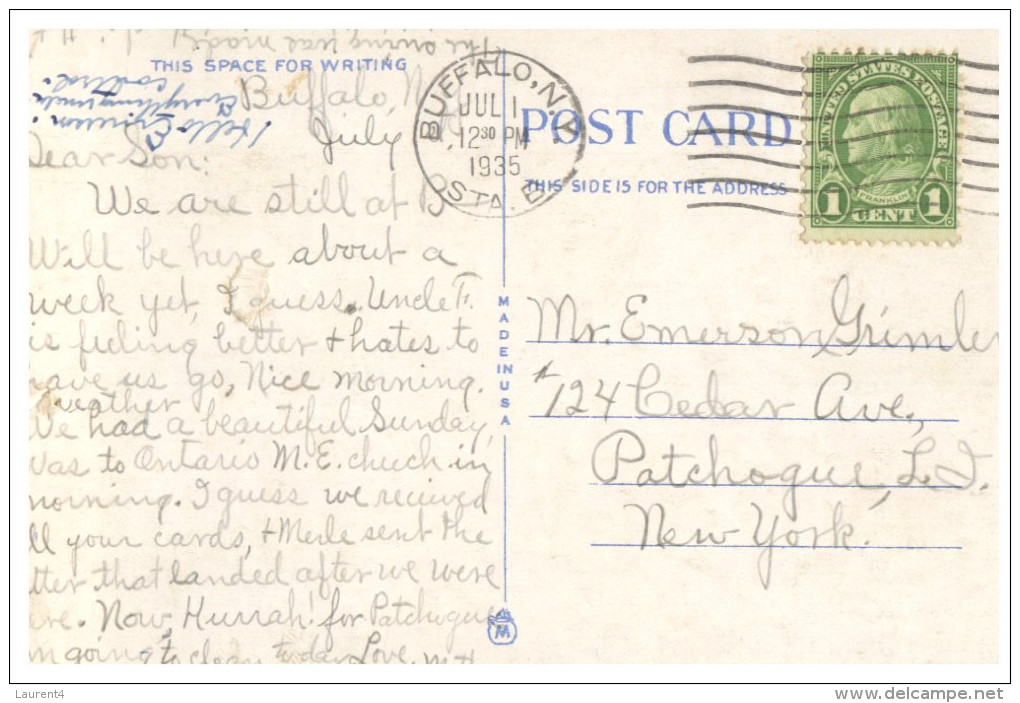 THIS SPACE FOR WRITING
Hello Emerson.
Everything under
control.
Buffalo, N
July
Dear Son:
We are still at B
Will be here about a
week yet, I guess. Uncle F.
is feeling better + hates to
have us go, Nice morning.
weather
We had a beautiful Sunday,
Was to Ontario M.E. church in
morning. I guess we recieved
all your cards, + Merle sent the
letter that landed after we were
here. Now Hurrah! for Patchogue
going to clean today Love,
BUFFALO, N.Y.
JUL 1
12 30 PM
1935
STA. B
POST CARD
THIS SIDE IS FOR THE ADDRESS
UNITED STATES POSTAGE
FRANKLIN
1 CENT 1
MADE IN USA
M
Mr. Emerson Grimler
#124 Cedar Ave,
Patchogue, L.I.
New York.
Laurent4
www.delcampe.net